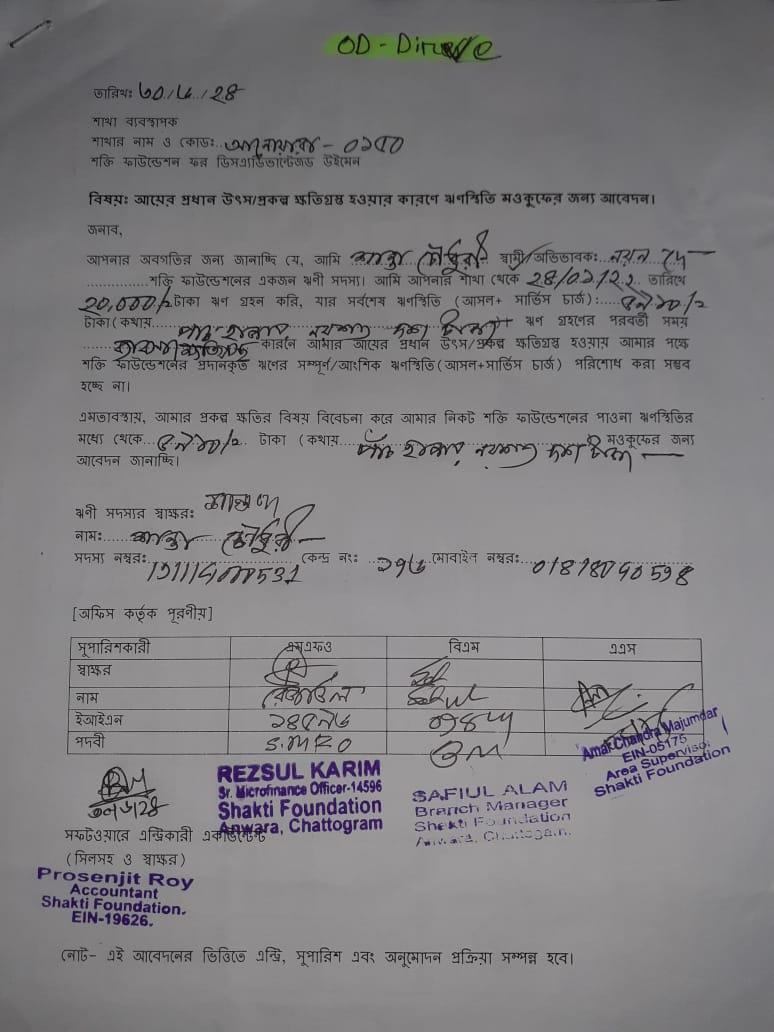 OD - Dir
তারিখ: ৩০/৬/২৪
শাখা ব্যবস্থাপক
শাখার নাম ও কোড: আনোয়ারা - ০১৫০
শক্তি ফাউন্ডেশন ফর ডিসএ্যাডভান্টেজড উইমেন
বিষয়: আয়ের প্রধান উৎস/প্রকল্প ক্ষতিগ্রস্ত হওয়ার কারণে ঋণস্থিতি মওকুফের জন্য আবেদন।
জনাব,
আপনার অবগতির জন্য জানাচ্ছি যে, আমি চৌধুরী স্বামী/অভিভাবক: নয়ন দে
শক্তি ফাউন্ডেশনের একজন ঋণী সদস্য। আমি আপনার শাখা থেকে ২৪/০১/২২ তারিখে
20,000/= টাকা ঋণ গ্রহন করি, যার সর্বশেষ ঋণস্থিতি (আসল+ সার্ভিস চার্জ): ৫৯১০/=
টাকা(কথায় পাঁচ হাজার নয়শত দশ টাকা ঋণ গ্রহণের পরবর্তী সময়
কারনে আমার আয়ের প্রধান উৎস/প্রকল্প ক্ষতিগ্রস্ত হওয়ায় আমার পক্ষে
শক্তি ফাউন্ডেশনের প্রদানকৃত ঋণের সম্পূর্ণ/আংশিক ঋণস্থিতি(আসল+সার্ভিস চার্জ) পরিশোধ করা সম্ভব
হচ্ছে না।
এমতাবস্থায়, আমার প্রকল্প ক্ষতির বিষয় বিবেচনা করে আমার নিকট শক্তি ফাউন্ডেশনের পাওনা ঋণস্থিতির
মধ্যে থেকে ৫৯১০/= টাকা (কথায় পাঁচ হাজার নয়শত দশ টাকা মওকুফের জন্য
আবেদন জানাচ্ছি।
ঋণী সদস্যর স্বাক্ষর:
নাম: চৌধুরী
সদস্য নম্বর: কেন্দ্র নং: ১৭৬ মোবাইল নম্বর:
[অফিস কর্তৃক পূরণীয়]
সুপারিশকারী এমএফও বিএম এএস
স্বাক্ষর
নাম রেজাউল
ইআইএন ১৪৫৯৬
পদবী S.MFO BM
REZSUL KARIM
Sr. Microfinance Officer-14596
Shakti Foundation
Anwara, Chattogram
SAFIUL ALAM
Branch Manager
Shakti Foundation
Anwara, Chattogram.
Amar Chandra Majumdar
EIN-05175
Area Supervisor
Shakti Foundation
৩০/৬/২৪
সফটওয়ারে এন্ট্রিকারী একাউন্টেন্ট
(সিলসহ ও স্বাক্ষর)
Prosenjit Roy
Accountant
Shakti Foundation.
EIN-19626.
নোট- এই আবেদনের ভিত্তিতে এন্ট্রি, সুপারিশ এবং অনুমোদন প্রক্রিয়া সম্পন্ন হবে।